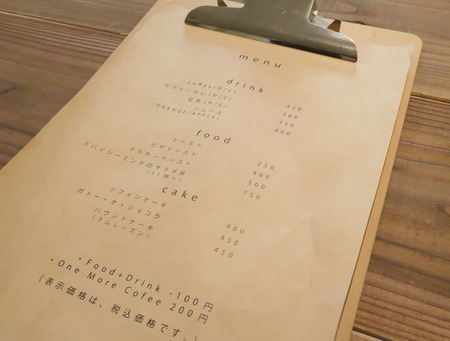 menu
drink
coffee(H/C) 450
カフェ・オレ(H/C) 500
紅茶(H/C) 450
ジュース 400
(ORANGE/APPLE)
food
トースト 250
ピザトースト 400
グラタントースト 500
スパイシーミンチのサラダ丼 750
(11時〜)
cake
シフォンケーキ 400
ガトー・オ・ショコラ 450
パウンドケーキ 450
(ラムレーズン)
・Food+Drink -100円
・One More Cofee 200円
(表示価格は、税込価格です。)